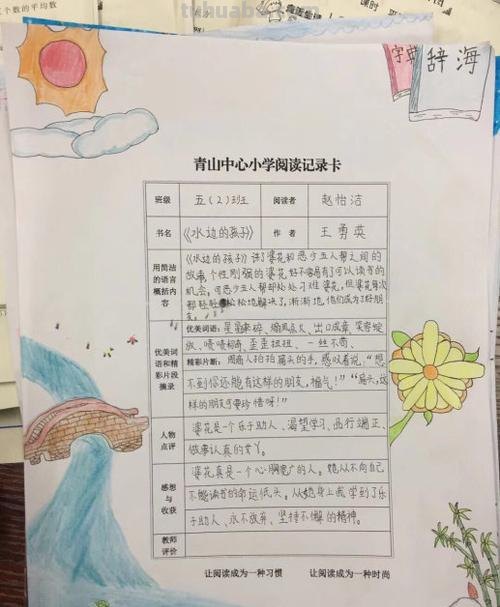 tuhuabao.com
个数的平均数
字典
辞海
青山中心小学阅读记录卡
班级 五(2)班 阅读者 赵怡洁
书名 《水边的孩子》 作者 王勇英
用简洁的语言概括内容
《水边的孩子》讲了婆花和恶少五人帮之间的
故事,个性刚强的婆花好不容易有了可以读书的
机会,可恶少五人帮却处处刁难婆花,但婆花每次
都轻轻松松地解决了,渐渐地,他们成为了好朋
友。
优美词语和精彩片段摘录
优美词语:
出口成章、笑容绽
放、啧啧称奇、歪歪扭扭、一丝不苟、
精彩片断:周商人拍拍扁头的手,感叹着说:“想
不到你还能有这样的朋友,福气!”“扁头,这
样的朋友可要珍惜呀!”
人物点评
婆花是一个乐于助人、渴望学习、品行端正、
做事认真的女丫。
感想与收获
婆花真是一个心胸宽广的人。她从不向自己
不能读书的命运低头。从她身上我学到了乐
于助人、永不放弃、坚持不懈的精神。
教师评价
让阅读成为一种习惯 让阅读成为一种时尚